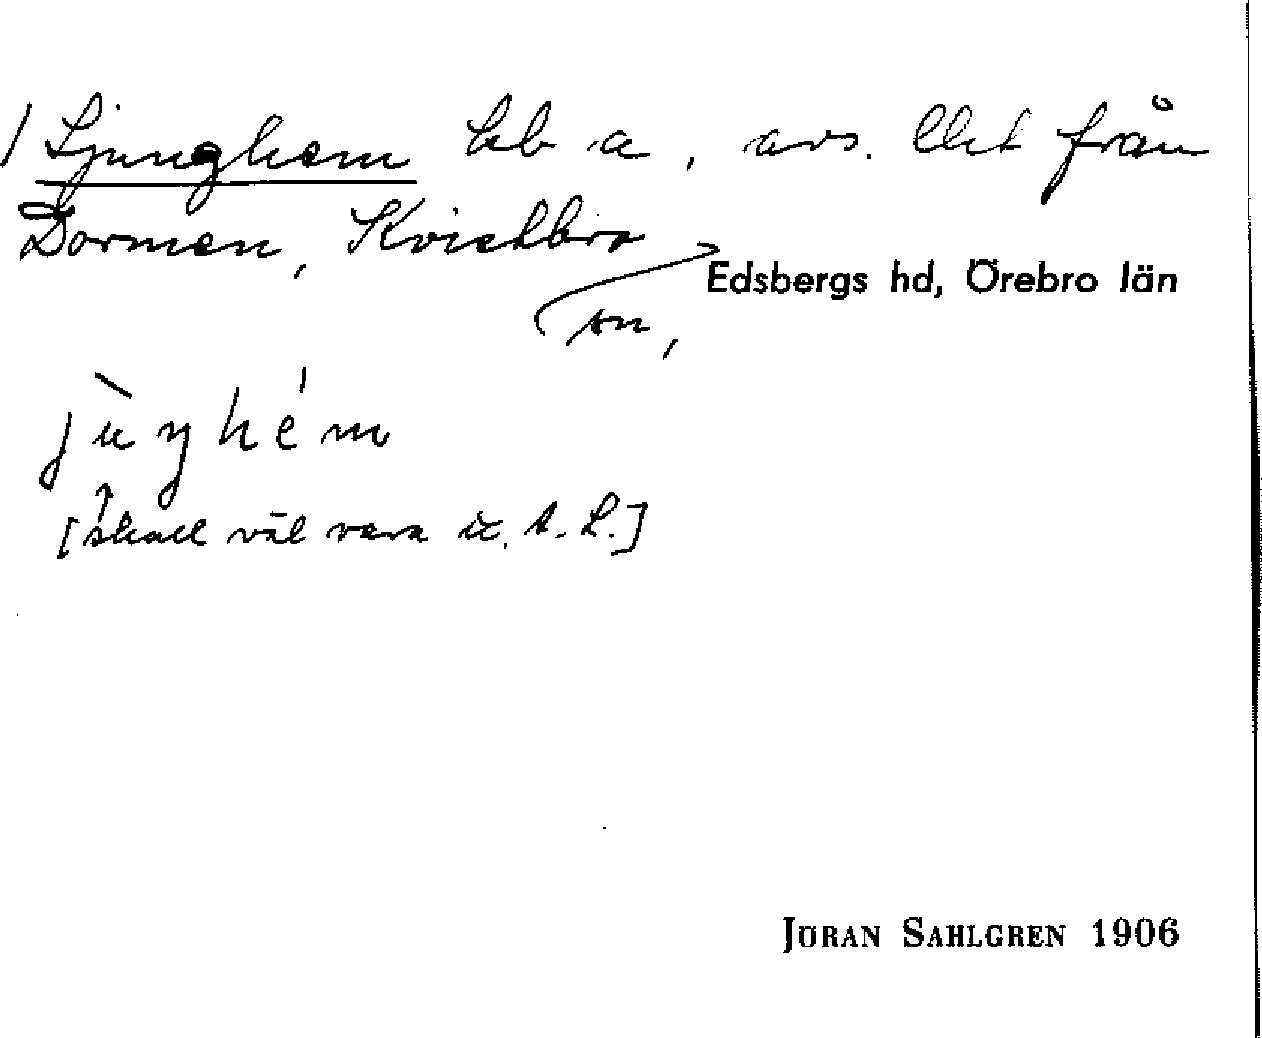 / Ljunghem hb a, avs. Ckt från
Dormen, Kvistbro
sn, Edsbergs hd, Örebro län
jùŋhém
[skall väl vara u. t. L.]
JÖRAN SAHLGREN 1906